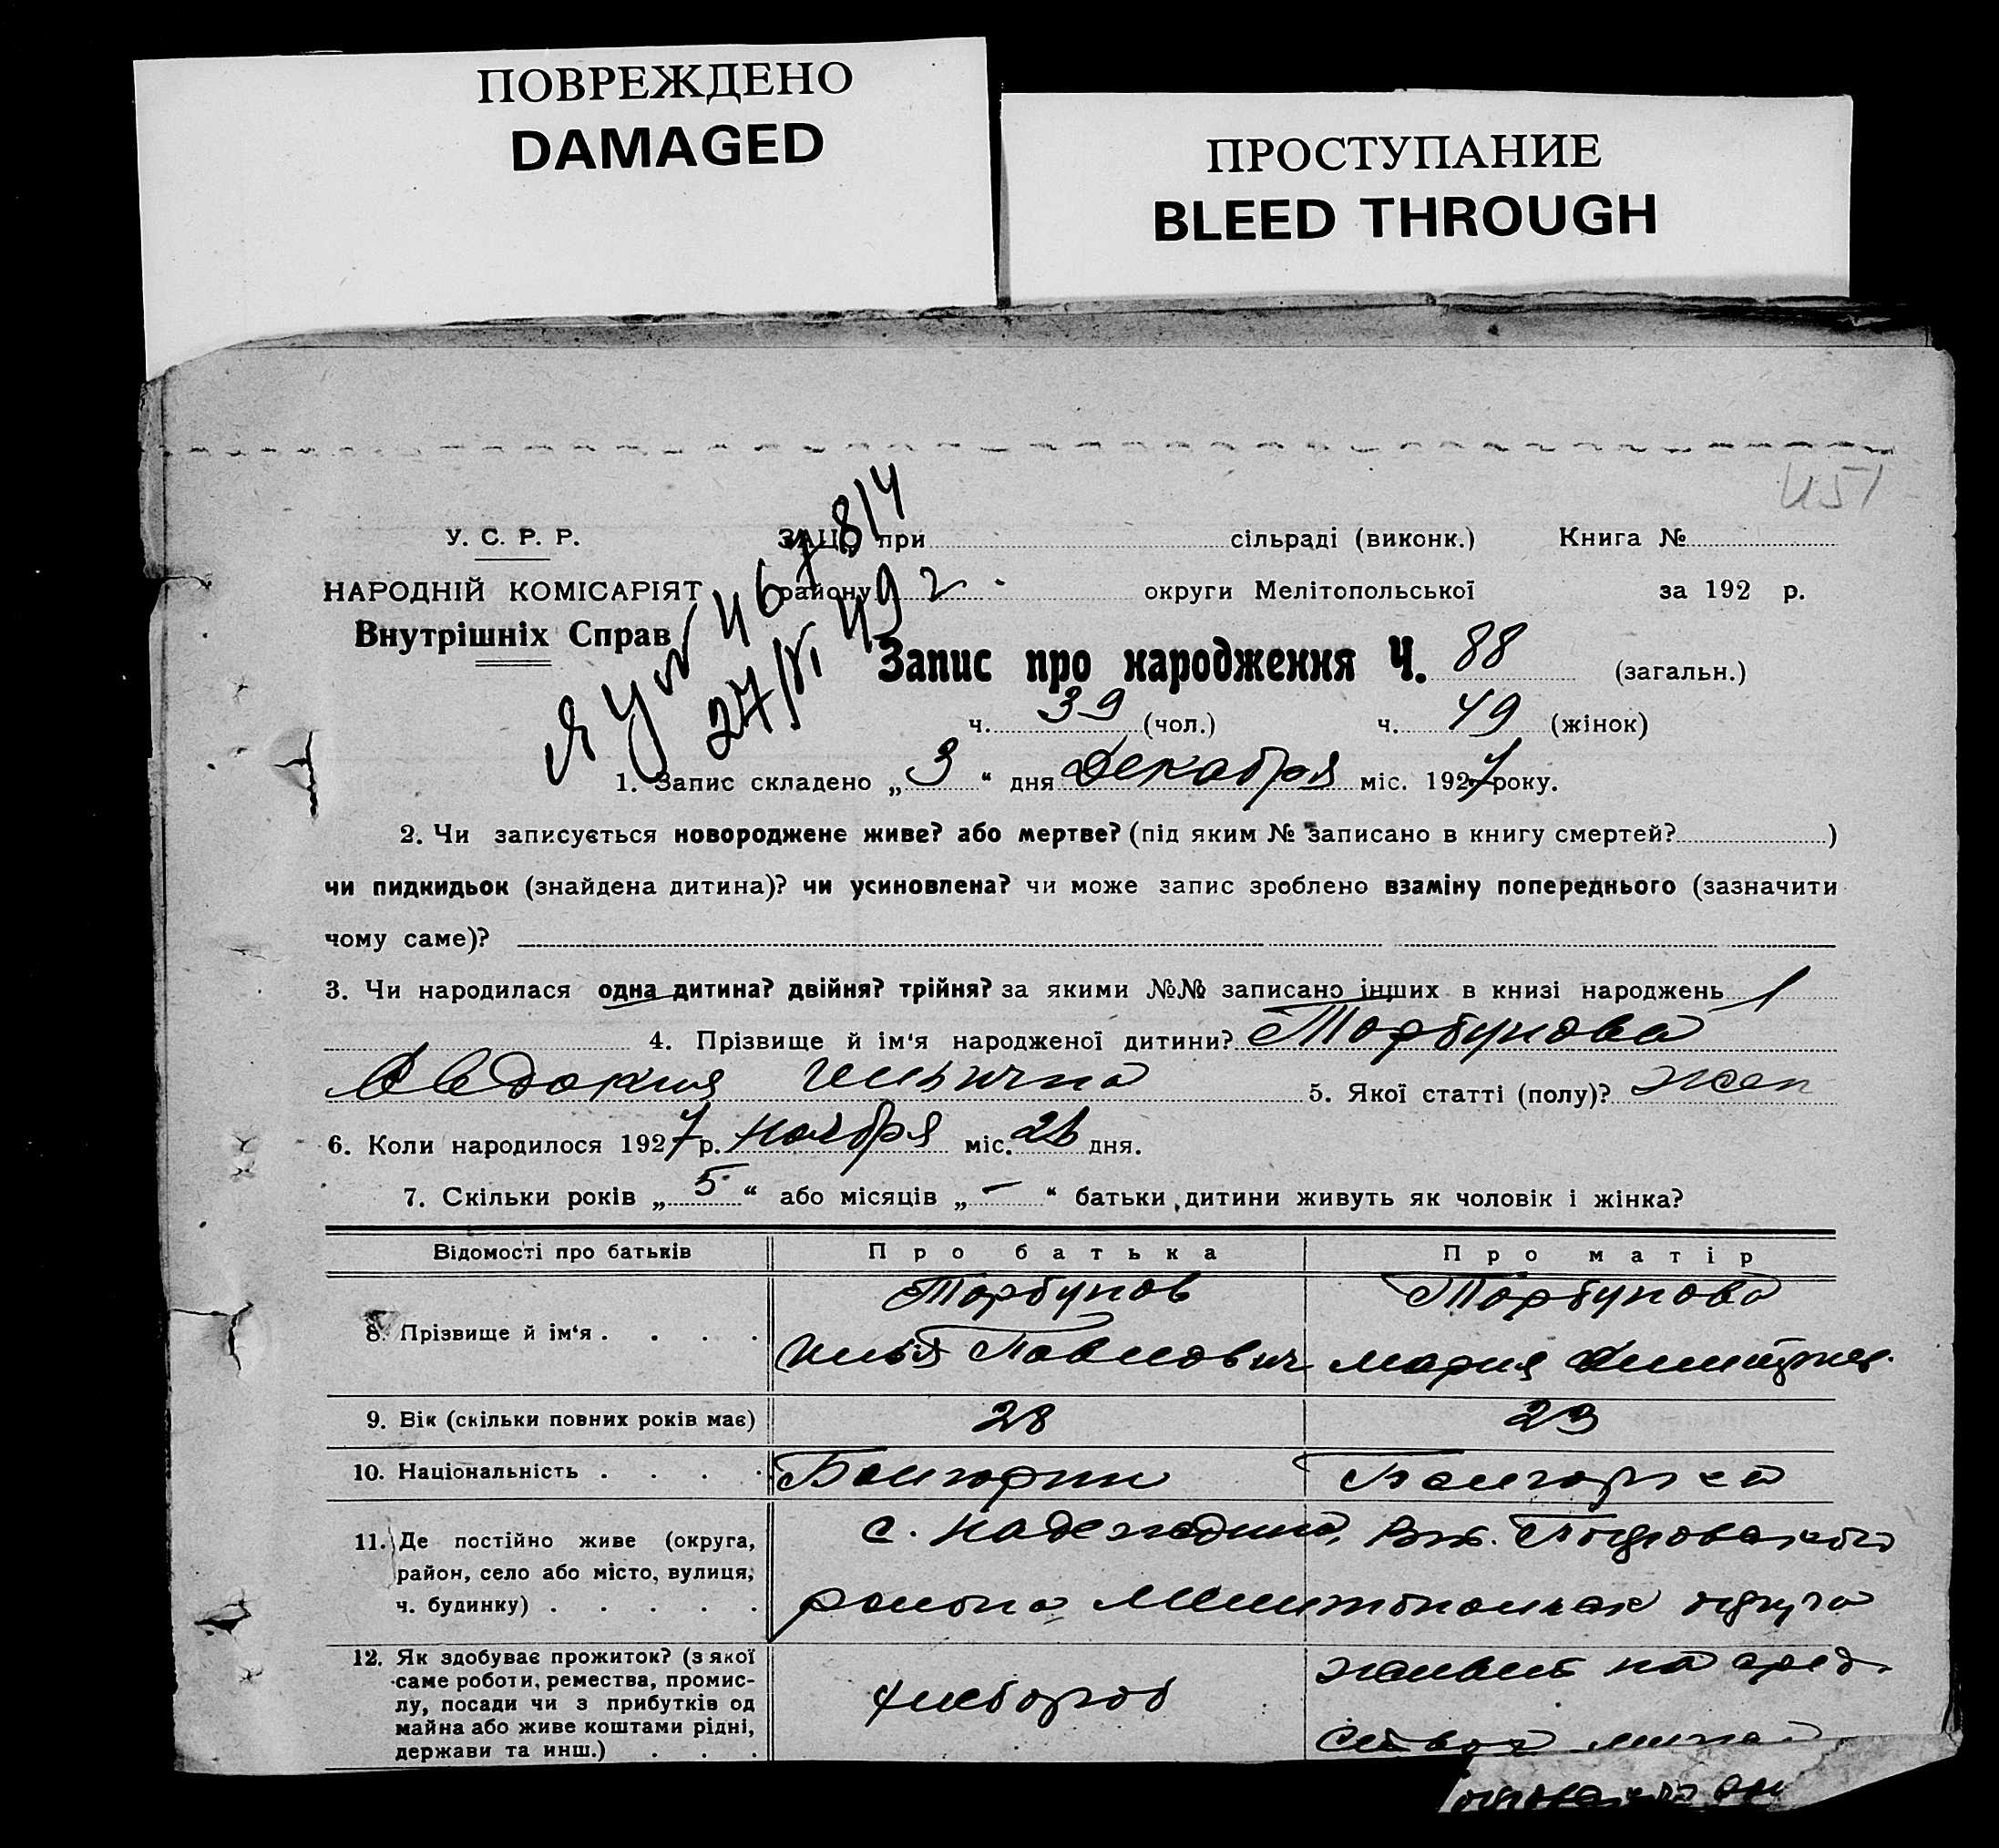 ПОВРЕЖДЕНО
DAMAGED
ПРОСТУПАНИЕ
BLEED THROUGH
451
У. С. Р. Р.
ЗАЦС при сільраді (виконк.) Книга №
НАРОДНІЙ КОМІСАРІЯТ
району округи Мелітопольської за 192 р.
Внутрішніх Справ
Запис про народження Ч. 88 (загальн.)
ч. 39 (чол.) ч. 49 (жінок)
1. Запис складено „ 3 “ дня Декабря міс. 1927 року.
2. Чи записується новороджене живе? або мертве? (під яким № записано в книгу смертей? )
чи пидкидьок (знайдена дитина)? чи усиновлена? чи може запис зроблено взаміну попереднього (зазначити
чому саме)?
3. Чи народилася одна дитина? двійня? трійня? за якими №№ записано інших в книзі народжень 1
4. Прізвище й ім‘я народженої дитини? Торбунова
Авдокия Ильична 5. Якої статті (полу)? жен
6. Коли народилося 1927 р. ноября міс. 26 дня.
7. Скільки років „ 5 “ або місяців „ — “ батьки дитини живуть як чоловік і жінка?
Відомості про батьків Про батька Про матір
Торбунов Торбунова
8. Прізвище й ім‘я . . . .
Илья Павлович Мария
9. Вік (скільки повних років має) 28 23
10. Національність . . . . Болгарин Болгарка
11. Де постійно живе (округа,
район, село або місто, вулиця,
ч. будинку) . . . . .
с. Надеждина,
района округа
12. Як здобуває прожиток? (з якої
саме роботи, ремества, промис-
лу, посади чи з прибутків од
майна або живе коштами рідні,
держави та инш.) . . .
хлебороб
живет на сред.